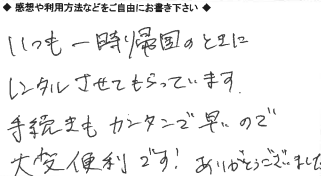 ◆ 感想や利用方法などをご自由にお書き下さい ◆
いつも一時帰国のときに
レンタルさせてもらっています.
手続きもカンタンで早いので
大変便利です! ありがとうございました